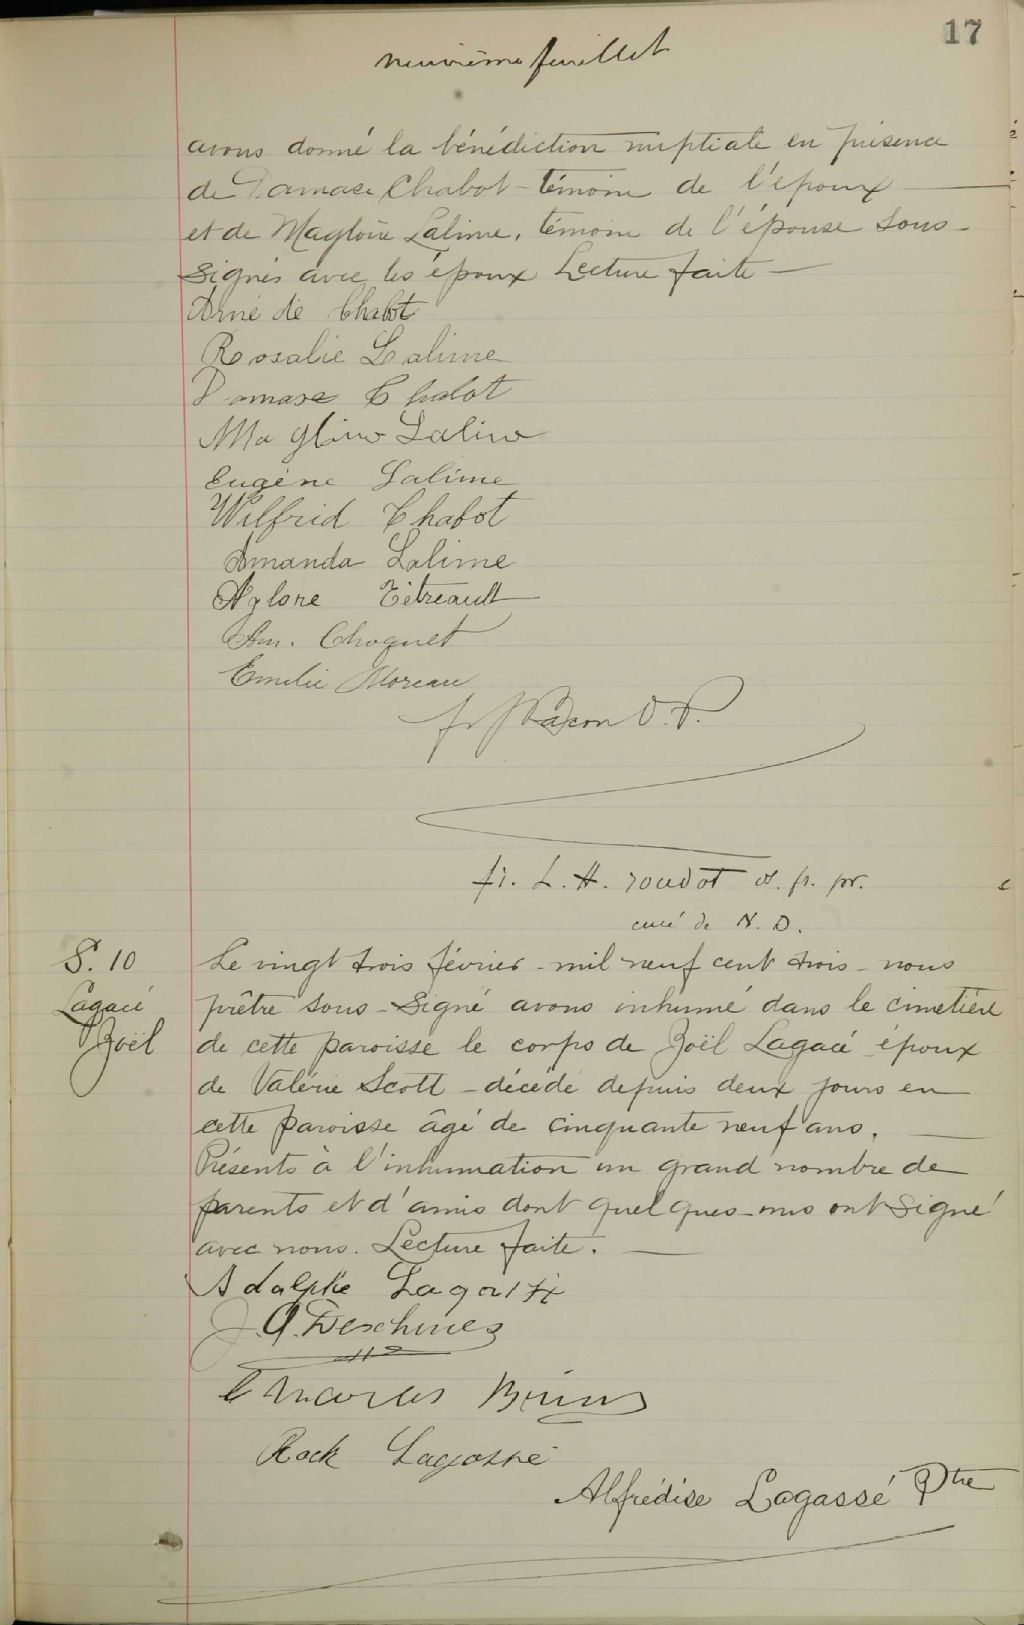 17
neuvième feuillet
avons donné la bénédiction nuptiale en présence
de Damase Chabot - témoin de l'époux
et de Magloire Lalime, témoin de l'épouse sous-
signés avec les époux Lecture faite —
Chabot
Rosalie Lalime
Damase Chabot
Magloire Lalime
Eugène Lalime
Wilfrid Chabot
Amanda Lalime
Tétreault
Choquet
Emilie Moreau
O.P.
fr. L. H. o. fr. pr.
curé de N. D.
S. 10
Lagacé
Joël
Le vingt trois février - mil neuf cent trois - nous
prêtre sous-signé avons inhumé dans le cimetière
de cette paroisse le corps de Joël Lagacé époux
de Valérie Scott - décédé depuis deux jours en
cette paroisse âgé de cinquante neuf ans. —
Présents à l'inhumation un grand nombre de
parents et d'amis dont quelques-uns ont signé
avec nous. Lecture faite. —
Adolphe
J. A. Deschines
Rock Lagassé
Alfrédise Lagassé Ptre